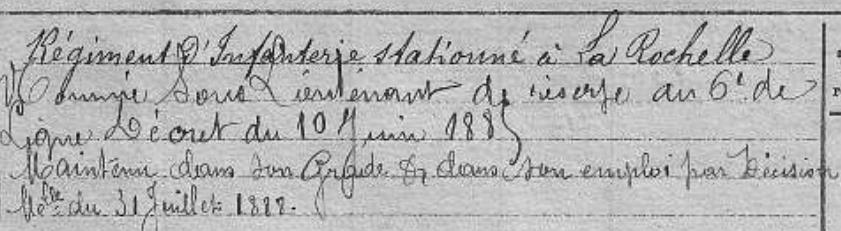 Régiment d'Infanterie stationné à La Rochelle
Nommé Sous Lieutenant de réserve au 6e de
Ligne Décret du 10 Juin 1885
Maintenu dans son Grade & dans son emploi par Décision
Melle du 31 Juillet 1888.